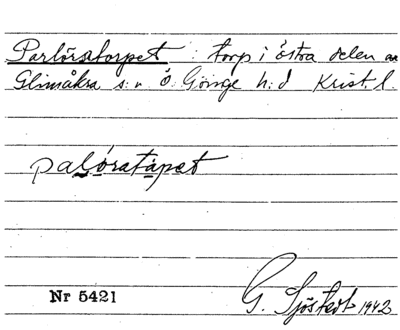 Parlörstorpet : torp i östra delen av
Glimåkra s:n Ö. Göinge h:d Krist. l.
palöratapet
Nr 5421
G. Sjöstedt 1942